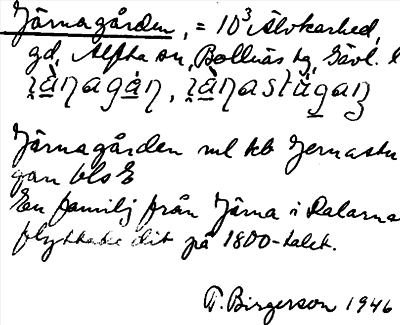 Järnagården, = 10³ Älvkarhed,
gd, Alfta sn, Bollnäs tg, Gävl. l
Järnagården nul kb Jernastu
gan bls E
En familj från Järna i Dalarna
flyttade dit på 1800-talet.
T. Birgerson 1946